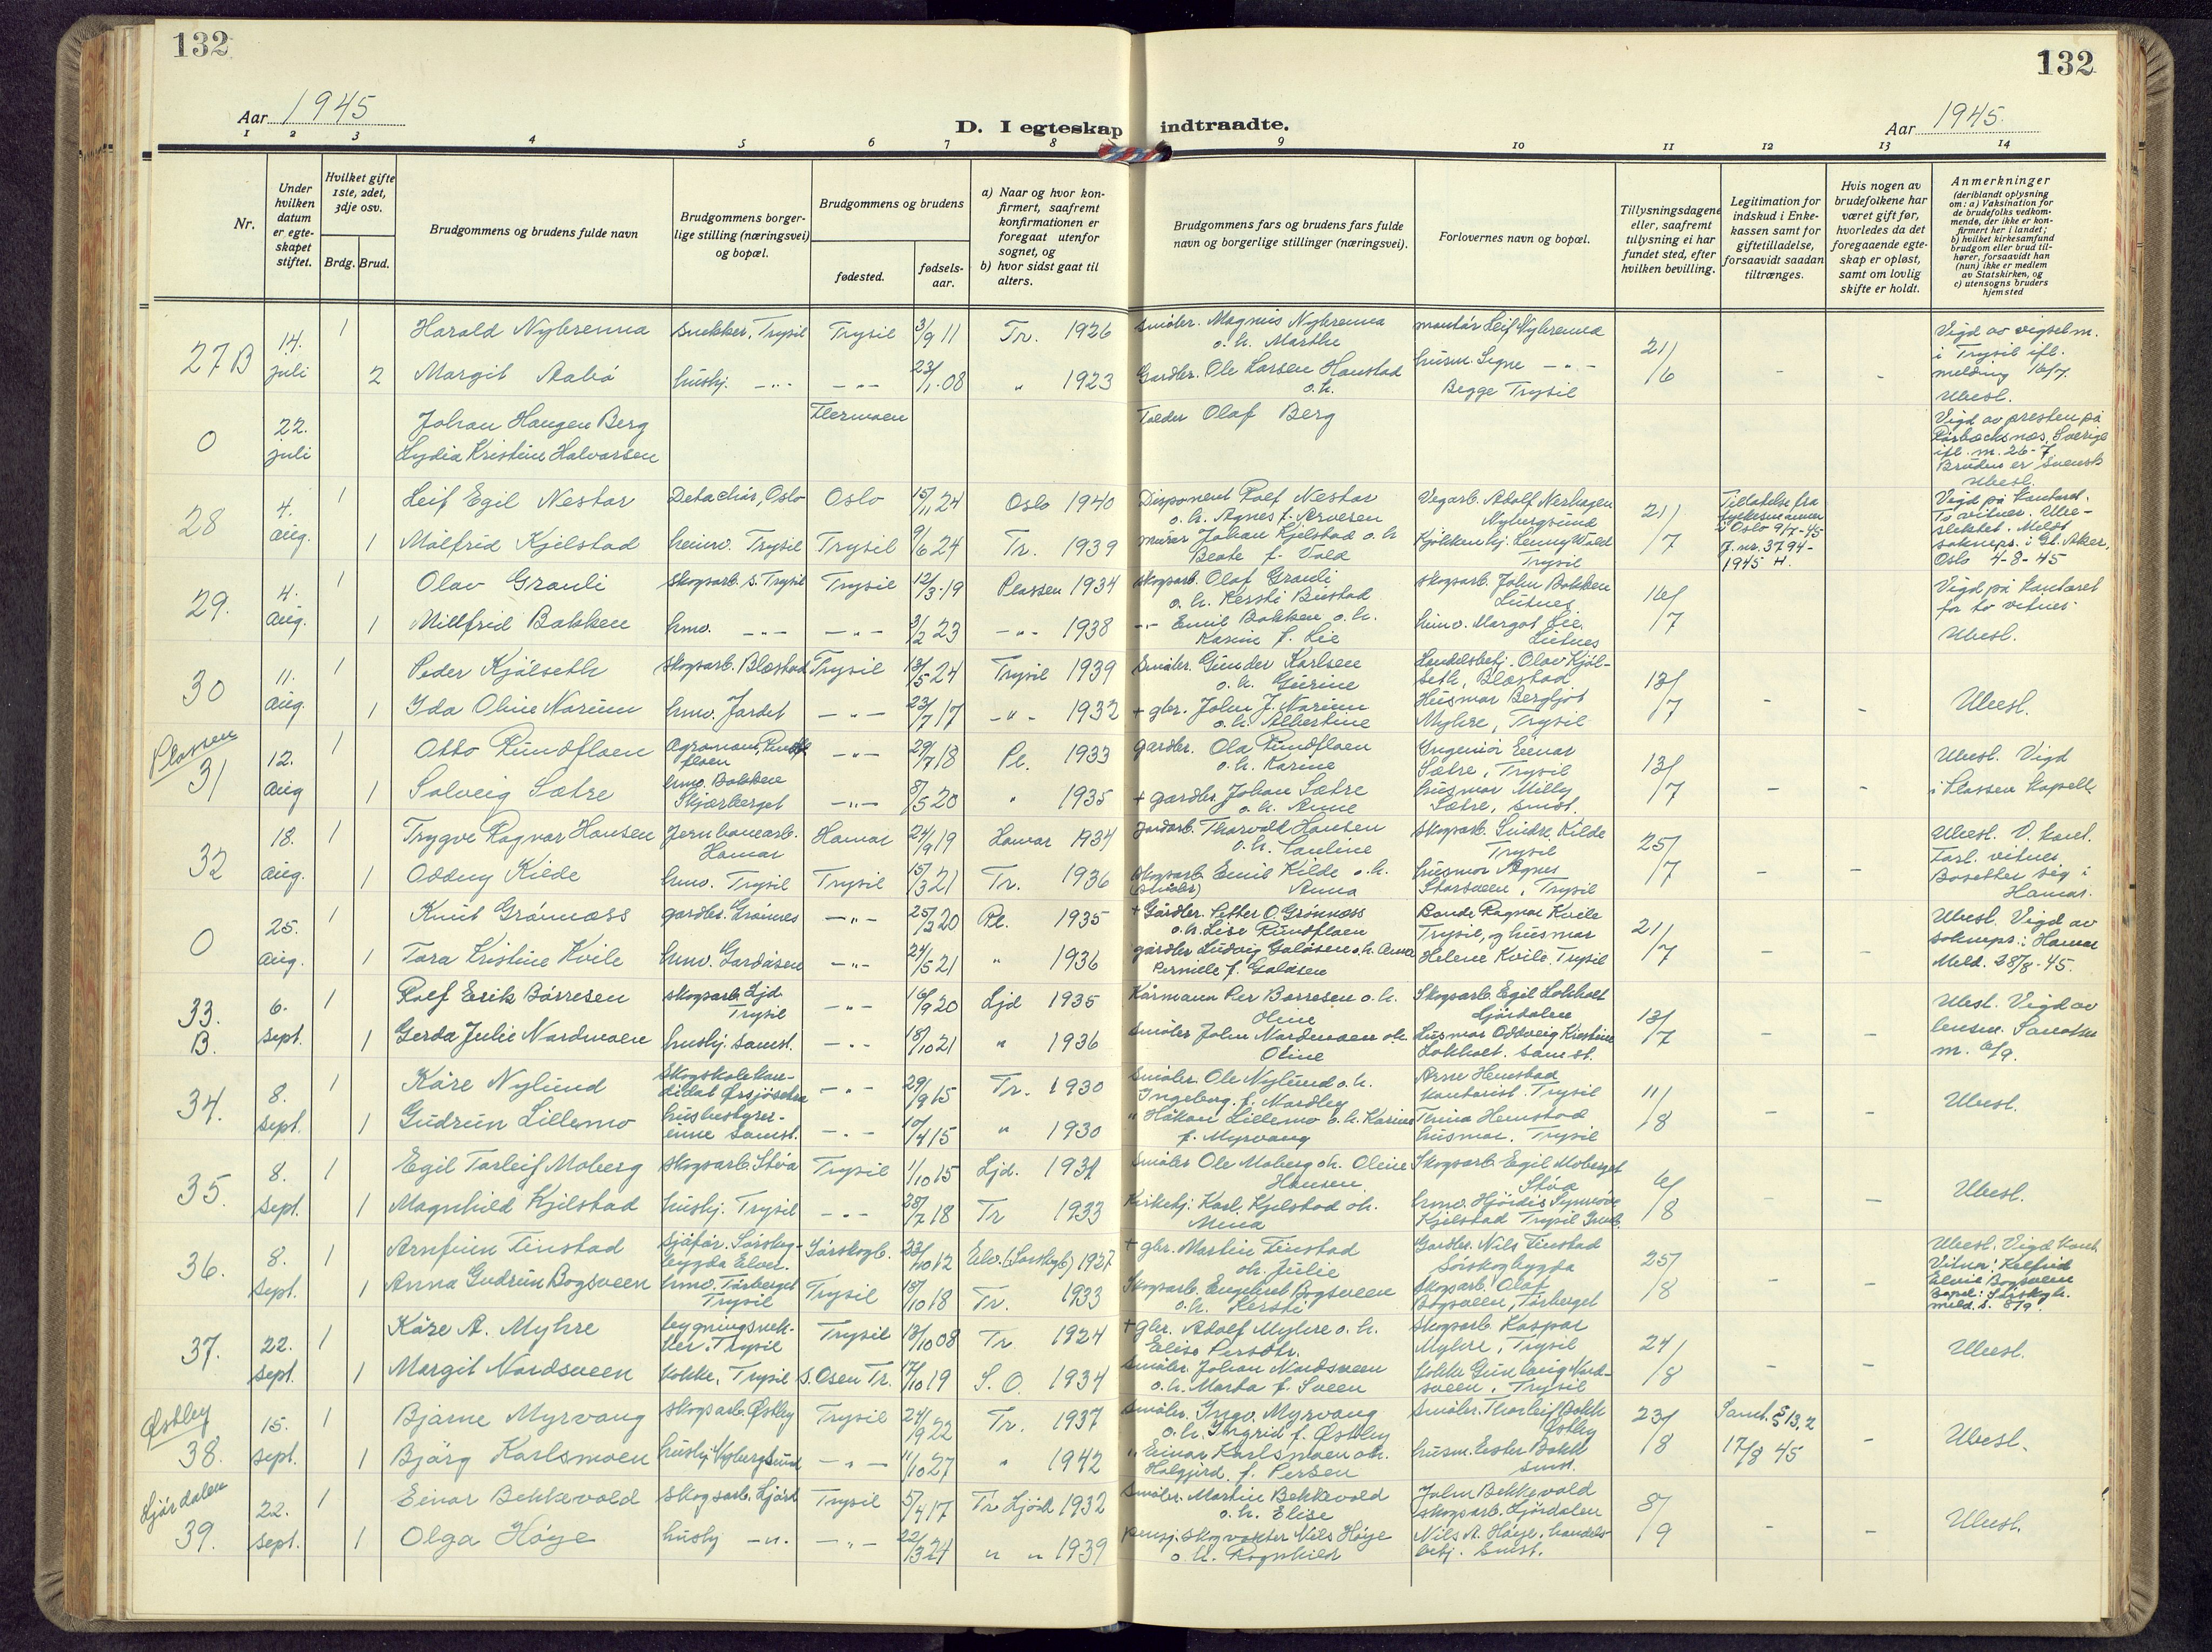 132
132
Aar 1945
D. I egteskap indtraadte.
Aar 1945.
1 2 3 4 5 6 7 8 9 10 11 12 13 14
Nr.
Under hvilken datum er egteskapet stiftet.
Hvilket gifte 1ste, 2det, 3dje osv.
Brdg. Brud.
Brudgommens og brudens fulde navn
Brudgommens borgerlige stilling (næringsvei) og bopæl.
Brudgommens og brudens
fødested.
fødselsaar.
a) Naar og hvor konfirmert, saafremt konfirmationen er foregaat utenfor sognet, og
b) hvor sidst gaat til alters.
Brudgommens fars og brudens fars fulde navn og borgerlige stillinger (næringsvei).
Forlovernes navn og bopæl.
Tillysningsdagene eller, saafremt tillysning ei har fundet sted, efter hvilken bevilling.
Legitimation for indskud i Enkekassen samt for giftetilladelse, forsaavidt saadan tiltrænges.
Hvis nogen av brudefolkene har været gift før, hvorledes da det foregaaende egteskap er opløst, samt om lovlig skifte er holdt.
Anmerkninger
(deriblandt oplysning om: a) Vaksination for de brudefolks vedkommende, der ikke er konfirmert her i landet;
b) hvilket kirkesamfund brudgom eller brud tilhører, forsaavidt han (hun) ikke er medlem av Statskirken, og
c) utensogns bruders hjemsted
27B 14. juli 1 Harald Nybrenna Snekker, Trysil Trysil 3/9 11 Tr. 1926 Småbr. Magnus Nybrenna o.h. Marthe montør Leif Nybrenna 21/6 Vigd av vigselm. i Trysil ifl. melding 16/7.
2 Margit Aabø hushj. -"- -"- 23/1-08 " 1923 Gardbr. Ole Larsen Hanstad o.h. husm. Signe -"- Begge Trysil - - Ubesl.
0 22. juli Johan Haugen Berg Flermoen Tolder Olaf Berg Vigd av presten på
Lydia Kristine Halvorsen Sverige ifl. m. 26-7. Bruden er svensk Ubesl.
28 4. aug. 1 Leif Egil Nestor Oslo Oslo 15/11 24 Oslo 1940 Disponent Rolf Nestor o.h. Agnes f. Arvesen Vegarb. Adolf Nerhagen Nybergsund 21/7 Tillatelse fra fylkesmannen i Oslo 9/7-45 J.nr. 3794-1945 H. Vigd på kontoret. To vitner. Ubeslektet. Meldt soknepr. i Gl. Aker, Oslo 4-8-45
1 Målfrid Kjelstad heimv. Trysil Trysil 9/6 24 Tr. 1939 murer Johan Kjelstad o.h. Beate f. Vold Kjøkkenhj. Jenny Wold Trysil
29. 4. aug. 1 Olav Granli skogsarb. S. Trysil Trysil 12/3-19 Plassen 1934 skogsarb. Olaf Granli o.h. Kersti Bustad skogsarb. John Bakken Lutnes 16/7 Vigd på kontoret for to vitner.
1 Millfrid Bakken hmv. -"- -"- 3/2 23 -"- 1938 -"- Emil Bakken o.h. Karin f. Lie heimv. Margot Lie Lutnes Ubesl.
30 11. aug. 1 Peder Kjølseth skogsarb. Blæstad Trysil 13/5 24 Trysil 1939 Småbr. Gunder Karlsen o.h. Gurine Handelsbetj. Olav Kjølseth, Blæstad 13/7
1 Ida Oline Norum hmv. Jordet -"- 23/7 17 -"- 1932 + gbr. John J. Norum o.h. Albertine Husmor Bergljot Myhre, Trysil - - Ubesl.
Plassen
31 12. aug 1 Otto Rundfloen Agronom, Rundfloen -"- 29/7 18 Pl. 1933 gardbr. Ola Rundfloen o.h. Karine Ingeniør Einar Sætre, Trysil 13/7 Ubesl. Vigd
1 Solveig Sætre hmv. Bakken Skjærberget -"- 8/5 20 " 1935 + gardbr. Johan Sætre o.h. Anne husmor Milly Sætre, smst. - - i Plassen Kapell.
32 18. aug. 1 Trygve Ragnar Hansen Jernbanearb. Hamar Hamar 24/9 19 Hamar 1934 Jordarb. Thorvald Hansen o.h. Pauline Skogsarb. Sindre Kilde Trysil 25/7 Ubesl. V. kont. Forl. vitner. Bosetter seg i Hamar.
1 Oddny Kilde hmv. Trysil Trysil 15/3 21 Tr. 1936 Skogsarb. Emil Kilde o.h. (småbr) Anna husmor Agnes Storsveen, Trysil - -
0 25. aug. 1 Knut Grønnæss gardbr. Grønnes -"- 25/2 20 Pl. 1935 + Gardbr. Petter O. Grønnæss o.h. Lise Rundfloen Bonde Ragnar Kvile Trysil, og husmor 21/7 Ubesl. Vigd av soknepr. i Hamar Meld. 28/8-45.
1 Tora Kristine Kvile hmv. Gardåsen -"- 24/5 21 " 1936 gårdbr Ludvig Galåsen o.h. Anne Pernille f. Galåsen Helene Kvile. Trysil - -
33. B. 6. sept. 1 Rolf Erik Børresen skogsarb. Ljd. Trysil -"- 16/9 20 Ljd 1935 Kårmann Per Børresen o.h. Oline Skogsarb. Egil Lokholt Ljørdalen 13/7 Ubesl. Vigd av lensm. m. 6/9.
1 Gerda Julie Nordmoen hushj. samst. -"- 18/10 21 " 1936 Småbr John Nordmoen o.h. Oline Husmor Oddveig Kristine Lokholt. samst.
34. 8. sept. 1 Kåre Nylund Skogskolekandidat Ørsjøsetra -"- 29/9 15 Tr. 1930 Småbr. Ole Nylund o.h. Ingeborg f. Mardley Arne Hemstad kontorist. Trysil 11/8
1 Gudrun Lillemo husbestyrerinne samst. -"- 10/4 15 " 1930 " Håkon Lillemo o.h. Karine f. Myrvang Trina Hemstad husmor. Trysil - - Ubesl.
35. 8. sept. 1 Egil Torleif Moberg skogsarb. Støa Trysil 1/10 15 Ljd. 1931 Småbr Ole Moberg o.h. Oline Hansen Skogsarb. Egil Moberget Støa 6/8
1 Magnhild Kjelstad hushj. Trysil -"- 28/7 18 Tr 1933 Kirkebj. Karl. Kjelstad o.h. Mina hmv. Hjørdis Synnøve Kjelstad Trysil Innb. - - Ubesl.
36. 8. sept. 1 Arnfinn Finstad sjåfør. Sørskogbygda Elver. Sørskogb. 23/10 12 Elv. (Sørskogb) 1927 + gbr. Martin Finstad o.h. Julie Gardbr. Nils Finstad Sørskogbygda 25/8 Ubesl. Vigd kont. Vitner: Kelfrid Elvine Bogsveen Bopel: Sørskogb. meld. s. 8/9.
1 Anna Gudrun Bogsveen hmv. Tørberget Trysil Trysil 18/10 18 Tr. 1933 Skogsarb. Engebret Bogsveen o.h. Kersti Skogsarb. Olaf Bogsveen, Tørberget - -
37. 22. sept. 1 Kåre A. Myhre bygningssnekker, Trysil Trysil 13/10 08 Tr 1924 + gbr. Adolf Myhre o.h. Elise Persdtr. skogsarb. Kaspar Myhre, Trysil 24/8
1 Margit Nordsveen kokke, Trysil S. Osen Tr. 17/10 19 S. O. 1934 Småbr. Johan Nordsveen o.h. Marta f. Sveen kokke Gunlaug Nordsveen, Trysil - - Ubesl.
Østby
38. 15. sept. 1 Bjarne Myrvang skogsarb. Østby Trysil 24/9 22 Tr. 1937 Småbr. Ingv. Myrvang o.h. Ingrid f. Østby Småbr. Thorleif Bakk Østby 23/8 Samt. § 13,2 17/8 45 - Ubesl.
1 Bjørg Karlsmoen hushj. Nybergsund -"- 11/10 27 " 1942 " Einar Karlsmoen o.h. Holgjerd. f. Persen husm. Ester Bakk smst.
Ljørdalen
39. 22. sept. 1 Einar Bekkevold skogsarb. Ljørd Trysil 5/4 17 Tr Ljørd 1932 Småbr. Martin Bekkevold o.h. Elise John Bekkevold skogsarb. Ljørdalen 8/9
1 Olga Høye hushj -"- -"- 22/3 24 " " 1939 pensj. skogvokter Nils Høye o.h. Ragnhild Nils A. Høye, handelsbetj. smst. - - Ubesl.